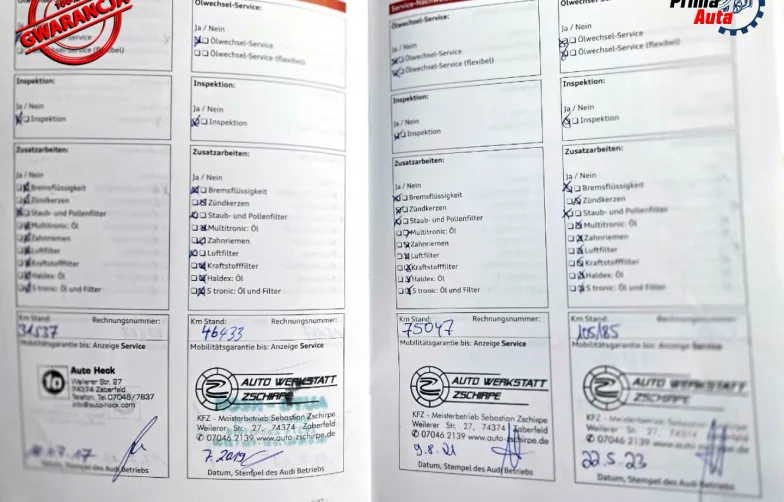 GWARANCJA
Service
Service (flexibel)
Inspektion:
Ja / Nein
Inspektion
Zusatzarbeiten:
Ja / Nein
Bremsflüssigkeit
Zündkerzen
Staub- und Pollenfilter
Multitronic: Öl
Zahnriemen
Luftfilter
Kraftstofffilter
Haldex: Öl
S tronic: Öl und Filter
Km Stand: Rechnungsnummer:
31537
Mobilitätsgarantie bis: Anzeige Service
Auto Heck
Weilerer Str. 27
74374 Zaberfeld
Telefon: Tel.07046/7637
info@auto-heck.com
Datum, Stempel des Audi Betriebs
Ölwechsel-Service:
Ja / Nein
Ölwechsel-Service
Ölwechsel-Service (flexibel)
Inspektion:
Ja / Nein
Inspektion
Zusatzarbeiten:
Ja / Nein
Bremsflüssigkeit
Zündkerzen
Staub- und Pollenfilter
Multitronic: Öl
Zahnriemen
Luftfilter
Kraftstofffilter
Haldex: Öl
S tronic: Öl und Filter
Km Stand: Rechnungsnummer:
46433
Mobilitätsgarantie bis: Anzeige Service
AUTO WERKSTATT
ZSCHIRPE
KFZ - Meisterbetrieb Sebastian Zschirpe
Weilerer Str. 27, 74374 Zaberfeld
✆ 07046 2139 www.auto-zschirpe.de
7.2019
Datum, Stempel des Audi Betriebs
Ölwechsel-Service:
Ja / Nein
Ölwechsel-Service
Ölwechsel-Service (flexibel)
Inspektion:
Ja / Nein
Inspektion
Zusatzarbeiten:
Ja / Nein
Bremsflüssigkeit
Zündkerzen
Staub- und Pollenfilter
Multitronic: Öl
Zahnriemen
Luftfilter
Kraftstofffilter
Haldex: Öl
S tronic: Öl und Filter
Km Stand: Rechnungsnummer:
75047
Mobilitätsgarantie bis: Anzeige Service
AUTO WERKSTATT
ZSCHIRPE
KFZ - Meisterbetrieb Sebastian Zschirpe
Weilerer Str. 27, 74374 Zaberfeld
✆ 07046 2139 www.auto-zschirpe.de
9.8.21
Datum, Stempel des Audi Betriebs
Prima
Auto
Ja / Nein
Ölwechsel-Service
Ölwechsel-Service (flexibel)
Inspektion:
Ja / Nein
Inspektion
Zusatzarbeiten:
Ja / Nein
Bremsflüssigkeit
Zündkerzen
Staub- und Pollenfilter
Multitronic: Öl
Zahnriemen
Luftfilter
Kraftstofffilter
Haldex: Öl
S tronic: Öl und Filter
Km Stand: Rechnungsnummer:
105185
Mobilitätsgarantie bis: Anzeige Service
AUTO WERKSTATT
ZSCHIRPE
KFZ - Meisterbetrieb Sebastian Zschirpe
Weilerer Str. 27, 74374 Zaberfeld
✆ 07046 2139 www.auto-zschirpe.de
22.5.23
Datum, Stempel des Audi Betriebs